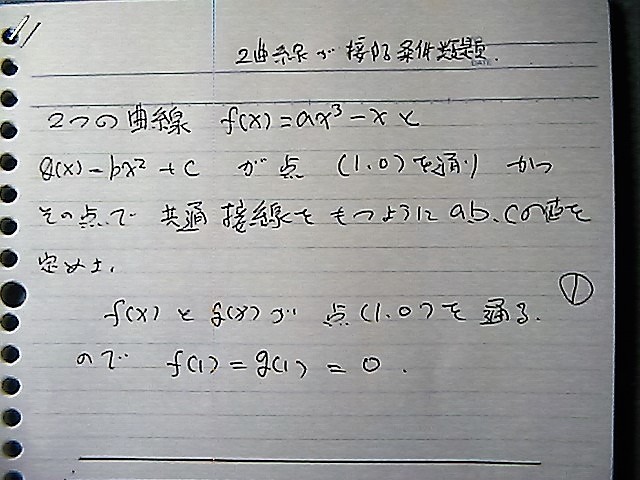 2曲線が接する条件題.
2つの曲線 f(x)=ax³-xと
g(x)=bx²+c が点 (1.0)を通り かつ
その点で 共通接線をもつように a.b.cの値を
定めよ.
①
f(x)とg(x)が 点(1.0)を通る.
ので f(1)=g(1)=0.